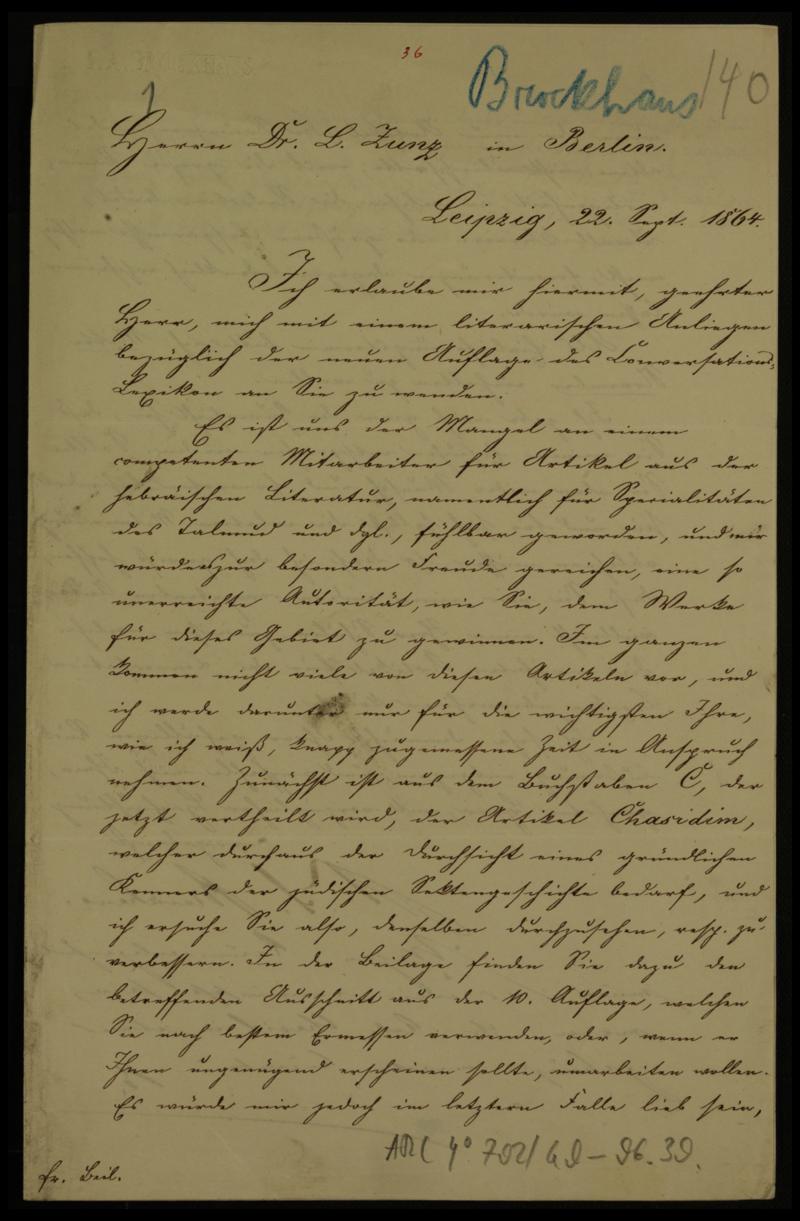 36
Brockhaus 140
Herrn Dr. L. Zunz in Berlin.
Leipzig, 22. Sept. 1864.
Ich erlaube mir hiermit, geehrter
Herr, mich mit einem literarischen Anliegen
bezüglich der neuen Auflage des Conversations-
Lexikon an Sie zu wenden.
Es ist uns der Mangel an einem
competenten Mitarbeiter für Artikel aus der
hebräischen Literatur, namentlich für Specialitäten
des Talmud und dgl., fühlbar geworden, und mir
würde es zur besondern Freude gereichen, eine so
unerreichte Autorität, wie Sie, dem Werke
für dieses Gebiet zu gewinnen. Im ganzen
kommen nicht viele von diesen Artikeln vor, und
ich werde darunter nur für die wichtigsten Ihre,
wie ich weiß, knapp zugemessene Zeit in Anspruch
nehmen. Zunächst ist aus dem Buchstaben C, der
jetzt vertheilt wird, der Artikel Chasidim,
welcher durchaus der Durchsicht eines gründlichen
Kenners der jüdischen Sektengeschichte bedarf, und
ich ersuche Sie also, denselben durchzusehen, resp. zu
verbessern. In der Beilage finden Sie dazu den
betreffenden Ausschnitt aus der 10. Auflage, welchen
Sie nach bestem Ermessen verwenden, oder, wenn er
Ihnen ungenügend erscheinen sollte, umarbeiten wollen.
Es würde mir jedoch im letztern Falle lieb sein,
ARC 4° 792/
fr. Beil.